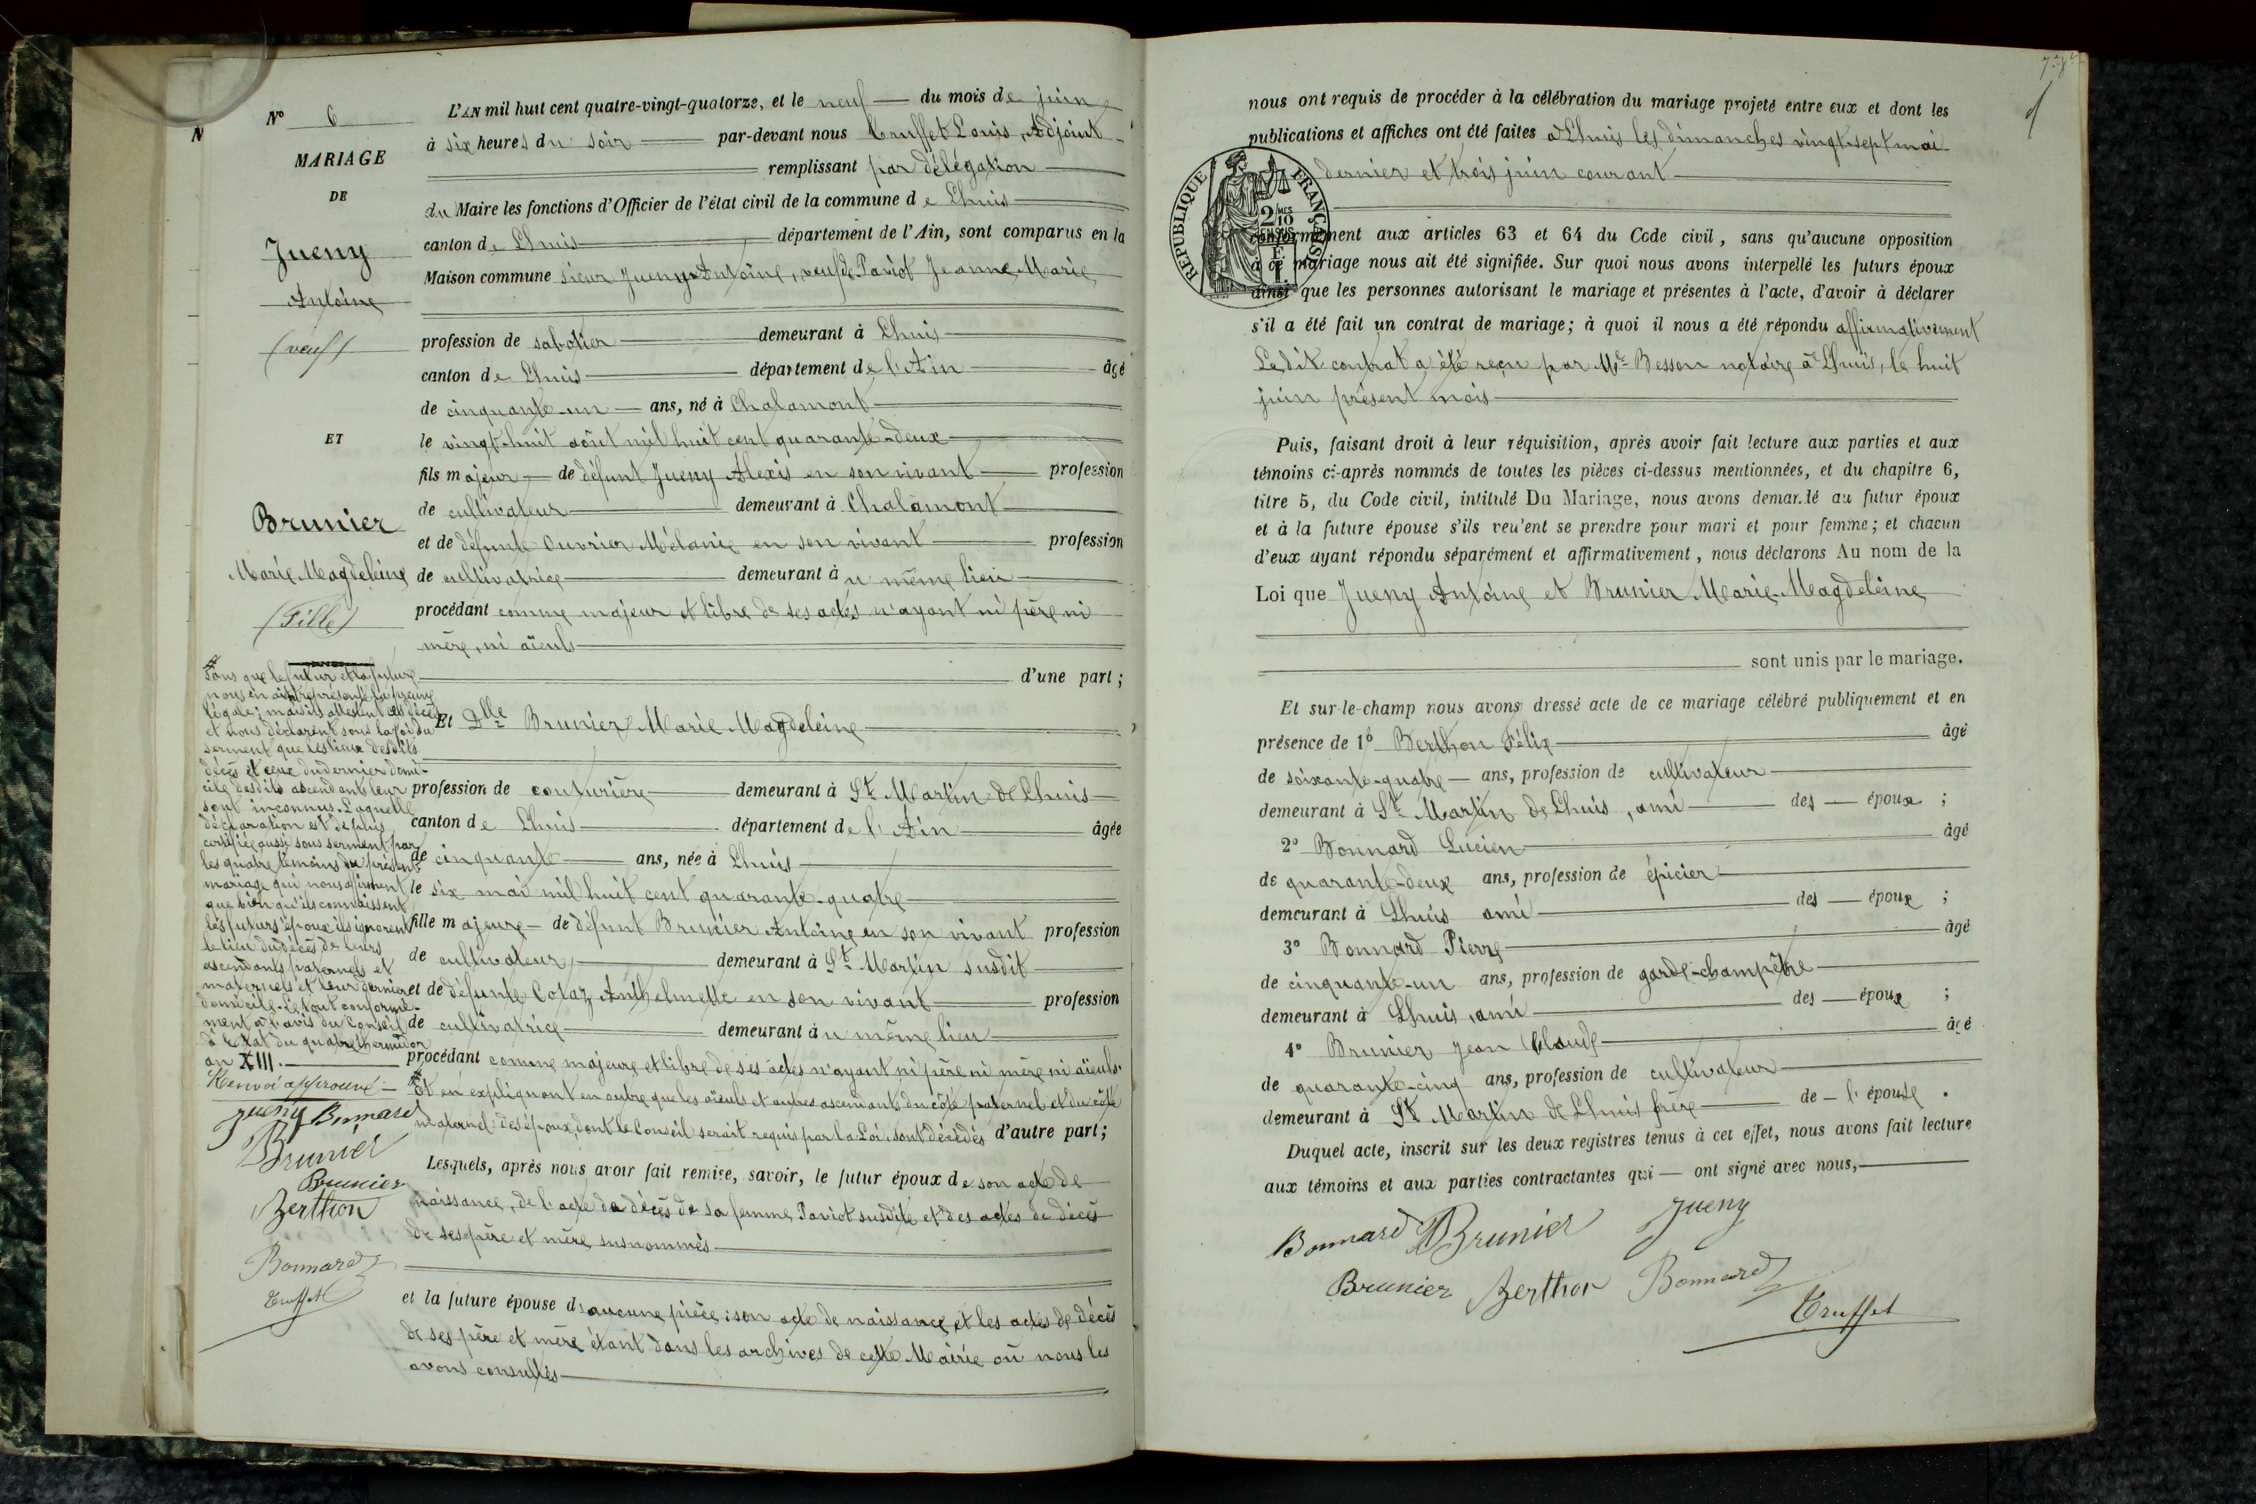 N° 6
MARIAGE
DE
Jueny
Antoine
(veuf)
ET
Brunier
Marie Magdeleine
(Fille)
L'AN mil huit cent quatre-vingt-quatorze, et le neuf du mois de juin
à six heures du soir par-devant nous Truffet Louis, Adjoint
remplissant par délégation
du Maire les fonctions d'Officier de l'état civil de la commune de Lhuis
canton de Lhuis département de l'Ain, sont comparus en la
Maison commune sieur Jueny Antoine, veuf de Paviot Jeanne Marie
profession de sabotier demeurant à Lhuis
canton de Lhuis département de l'Ain âgé
de cinquante-un ans, né à Chalamont
le vingt-huit août mil huit cent quarante-deux
fils majeur de défunt Jueny Alexis en son vivant profession
de cultivateur demeurant à Chalamont
et de défunte Ouvrier Mélanie en son vivant profession
de cultivatrice demeurant à u même lieu
procédant comme majeur et libre de ses actes n'ayant ni père ni
mère, ni aïeuls
d'une part;
Et Dlle Brunier Marie Magdeleine
profession de couturière demeurant à St Martin de Lhuis
canton de Lhuis département de l'Ain âgée
de cinquante ans, née à Lhuis
le six mai mil huit cent quarante-quatre
fille majeure de défunt Brunier Antoine en son vivant profession
de cultivateur demeurant à St Martin susdit
et de défunte Cotaz Anthelmette en son vivant profession
de cultivatrice demeurant à u même lieu
procédant comme majeure et libre de ses actes n'ayant ni père ni mère ni aïeuls.
Et en expliquant en outre que les aïeuls et autres ascendants du côté paternel et du côté
maternel des époux, dont le Conseil serait requis par la Loi, sont décédés d'autre part;
sans que le futur et la future
nous en aient représenté la preuve
légale; mais ils attestent ces décès
et nous déclarent sous la foi du
serment que les lieux desdits
décès et ceux du dernier domi-
cile desdits ascendants leur
sont inconnus. Laquelle
déclaration est de plus
certifiée aussi sous serment par
les quatre témoins du présent
mariage qui nous affirment
que bien qu'ils connaissent
les futurs époux ils ignorent
le lieu du décès de leurs
ascendants paternels et
maternels et leur dernier
domicile. Le tout conformé-
ment à l'avis du Conseil
d'Etat du quatre thermidor
an XIII.
Renvoi approuvé
Jueny Bonnard
Brunier
Brunier
Berthon
Bonnard
Truffet
Lesquels, après nous avoir fait remise, savoir, le futur époux de son acte de
naissance, de l'acte de décès de sa femme Paviot susdite et des actes de décès
de ses père et mère susnommés
et la future épouse d'aucune pièce: son acte de naissance et les actes de décès
de ses père et mère étant dans les archives de cette Mairie où nous les
avons consultés
nous ont requis de procéder à la célébration du mariage projeté entre eux et dont les
publications et affiches ont été faites à Lhuis les dimanches vingt-sept mai
dernier et trois juin courant
RÉPUBLIQUE FRANÇAISE
2/10MES
EN SUS
1 F
conformément aux articles 63 et 64 du Code civil, sans qu'aucune opposition
à ce mariage nous ait été signifiée. Sur quoi nous avons interpellé les futurs époux
ainsi que les personnes autorisant le mariage et présentes à l'acte, d'avoir à déclarer
s'il a été fait un contrat de mariage; à quoi il nous a été répondu affirmativement
Ledit contrat a été reçu par Me Besson notaire à Lhuis, le huit
juin présent mois
Puis, faisant droit à leur réquisition, après avoir fait lecture aux parties et aux
témoins ci-après nommés de toutes les pièces ci-dessus mentionnées, et du chapitre 6,
titre 5, du Code civil, intitulé Du Mariage, nous avons demandé au futur époux
et à la future épouse s'ils veulent se prendre pour mari et pour femme; et chacun
d'eux ayant répondu séparément et affirmativement, nous déclarons Au nom de la
Loi que Jueny Antoine et Brunier Marie-Magdeleine
sont unis par le mariage.
Et sur-le-champ nous avons dressé acte de ce mariage célébré publiquement et en
présence de 1° Berthon Félix âgé
de soixante-quatre ans, profession de cultivateur
demeurant à St Martin de Lhuis, ami des époux;
2° Bonnard Lucien âgé
de quarante-deux ans, profession de épicier
demeurant à Lhuis ami des époux;
3° Bonnard Pierre âgé
de cinquante-un ans, profession de garde-champêtre
demeurant à Lhuis, ami des époux;
4° Brunier Jean Claude âgé
de quarante-cinq ans, profession de cultivateur
demeurant à St Martin de Lhuis frère de l'épouse.
Duquel acte, inscrit sur les deux registres tenus à cet effet, nous avons fait lecture
aux témoins et aux parties contractantes qui ont signé avec nous,
Bonnard Brunier Jueny
Brunier Berthon Bonnard
Truffet